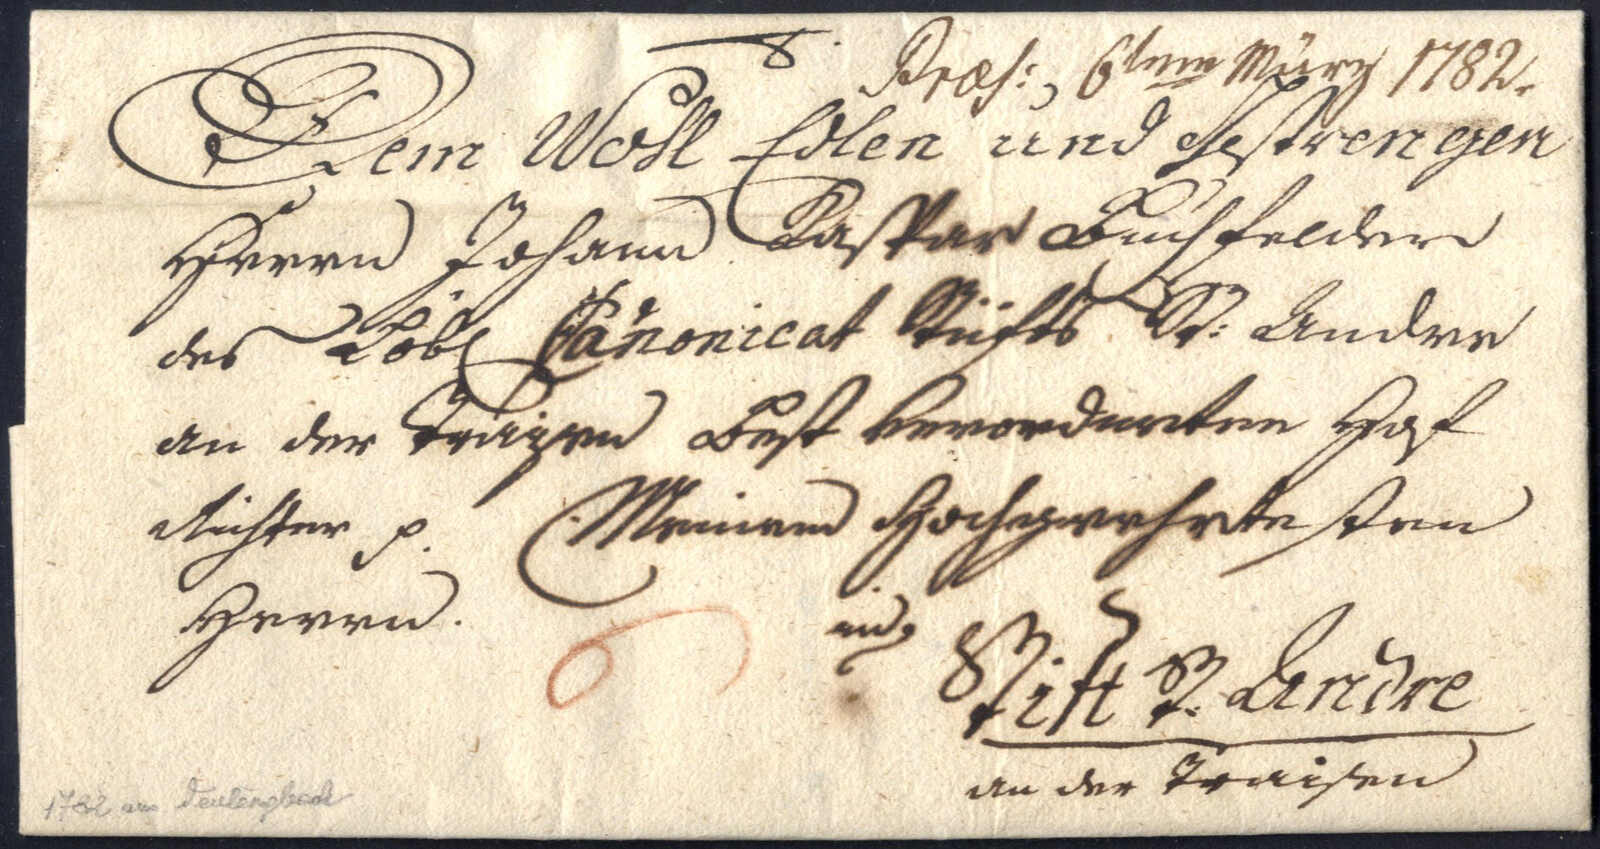 Præs: 6ten März 1782.
Dem Wohl Edlen und Gestrengen
Herrn Johann Kaspar Buchfelder
des Löbl Canonicat Stüfts St: Andree
an der Traisen Best verordneten Hof
Richter p. Meinem Hochgeehrtesten
Herrn.
6
Stift St. Andre
an der Traisen
1782 aus